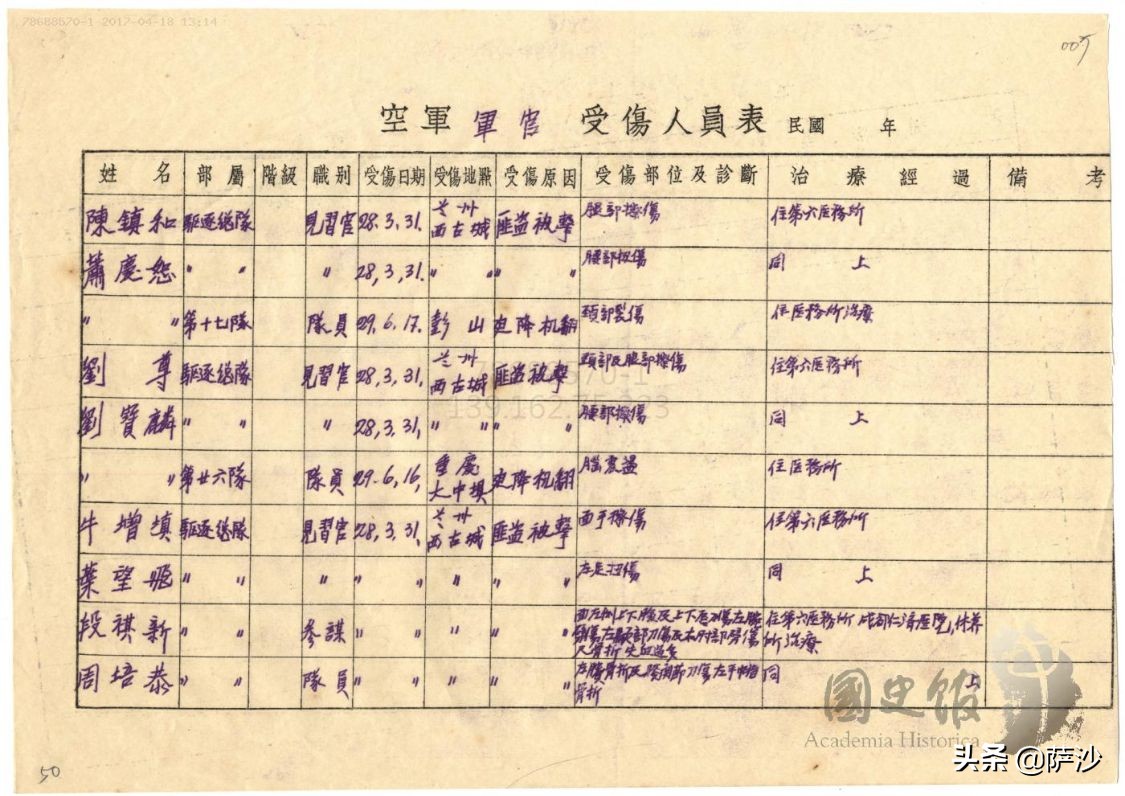 78688570-1 2017-04-18 13:14
005
空軍 軍官 受傷人員表 民國 年
姓名 部屬 階級 職別 受傷日期 受傷地點 受傷原因 受傷部位及診斷 治療經過 備考
陳鎮和 驅逐總隊 見習官 28.3.31. 兰州西古城 匪盗被擊 腿部擦傷 住第六医務所
蕭慶恕 〃 〃 〃 28,3,31. 〃 〃 〃 〃 腰部扭傷 同上
〃 〃 第十七隊 隊員 29.6.17. 彭山 迫降机翻 頸部裂傷 住医務所治療
劉尊 驅逐總隊 見習官 28,3,31. 兰州西古城 匪盗被擊 頸部及腿部擦傷 住第六医務所
劉寶麟 〃 〃 〃 28,3,31. 〃 〃 〃 〃 腰部擦傷 同上
〃 〃 第廿六隊 隊員 29.6,16, 重慶大中壩 迫降机翻 腦震盪 住医務所
牛增慎 驅逐總隊 見習官 28,3,31. 兰州西古城 匪盗被擊 面手擦傷 住第六医務所
葉望飛 〃 〃 〃 〃 〃 〃 〃 〃 左足扭傷 同上
段祺新 〃 〃 參謀 〃 〃 〃 〃 〃 住第六医務所 成都仁濟医院,休养所治療
周培泰 〃 〃 隊員 〃 〃 〃 〃 〃 同上
78688570-1
國史館
Academia Historica
头条 @萨沙
50